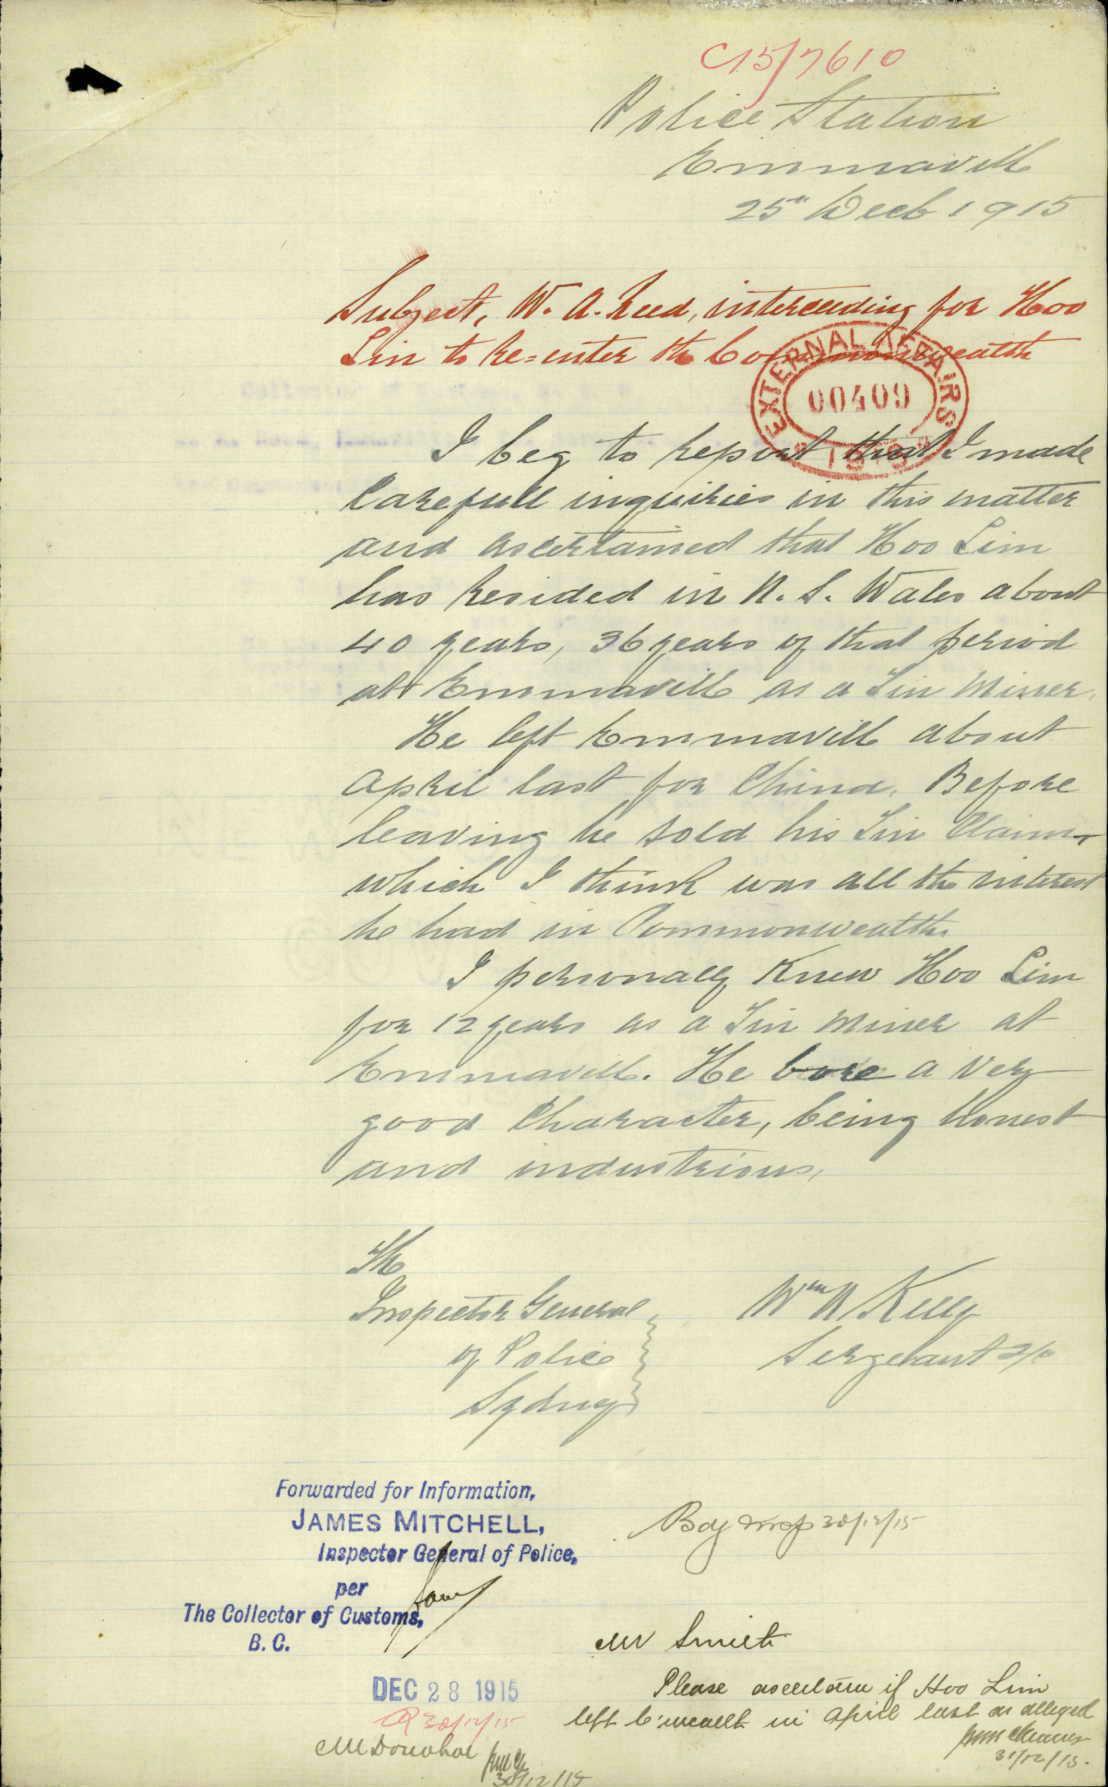 C15/7610
Police Station
Emmaville
25th Decb 1915
Subject, W. A. Reed, interceeding for Hoo
Lin to re=enter the Commonwealth
EXTERNAL AFFAIRS
00409
I beg to report that I made
carefull inquiries in this matter
and ascertained that Hoo Lim
has resided in N. S. Wales about
40 years, 36 years of that period
at Emmaville as a Tin Miner.
He left Emmaville about
April last for China. Before
leaving he sold his Tin Claim
which I think was all the interest
he had in Commonwealth.
I personally knew Hoo Lim
for 12 years as a Tin Miner at
Emmaville. He bore a very
good Character, being honest
and industrious.
The
Inspector General
of Police
Sydney
Wm Kelly
Sergeant
Forwarded for Information,
JAMES MITCHELL,
Inspector General of Police,
per
The Collector of Customs,
B. C.
DEC 28 1915
30/12/15
Mr Donohoe
30/12/15
Bdg Insp 30/12/15
Mr Smith
Please ascertain if Hoo Lim
left C'wealth in April last as alleged
31/12/15.